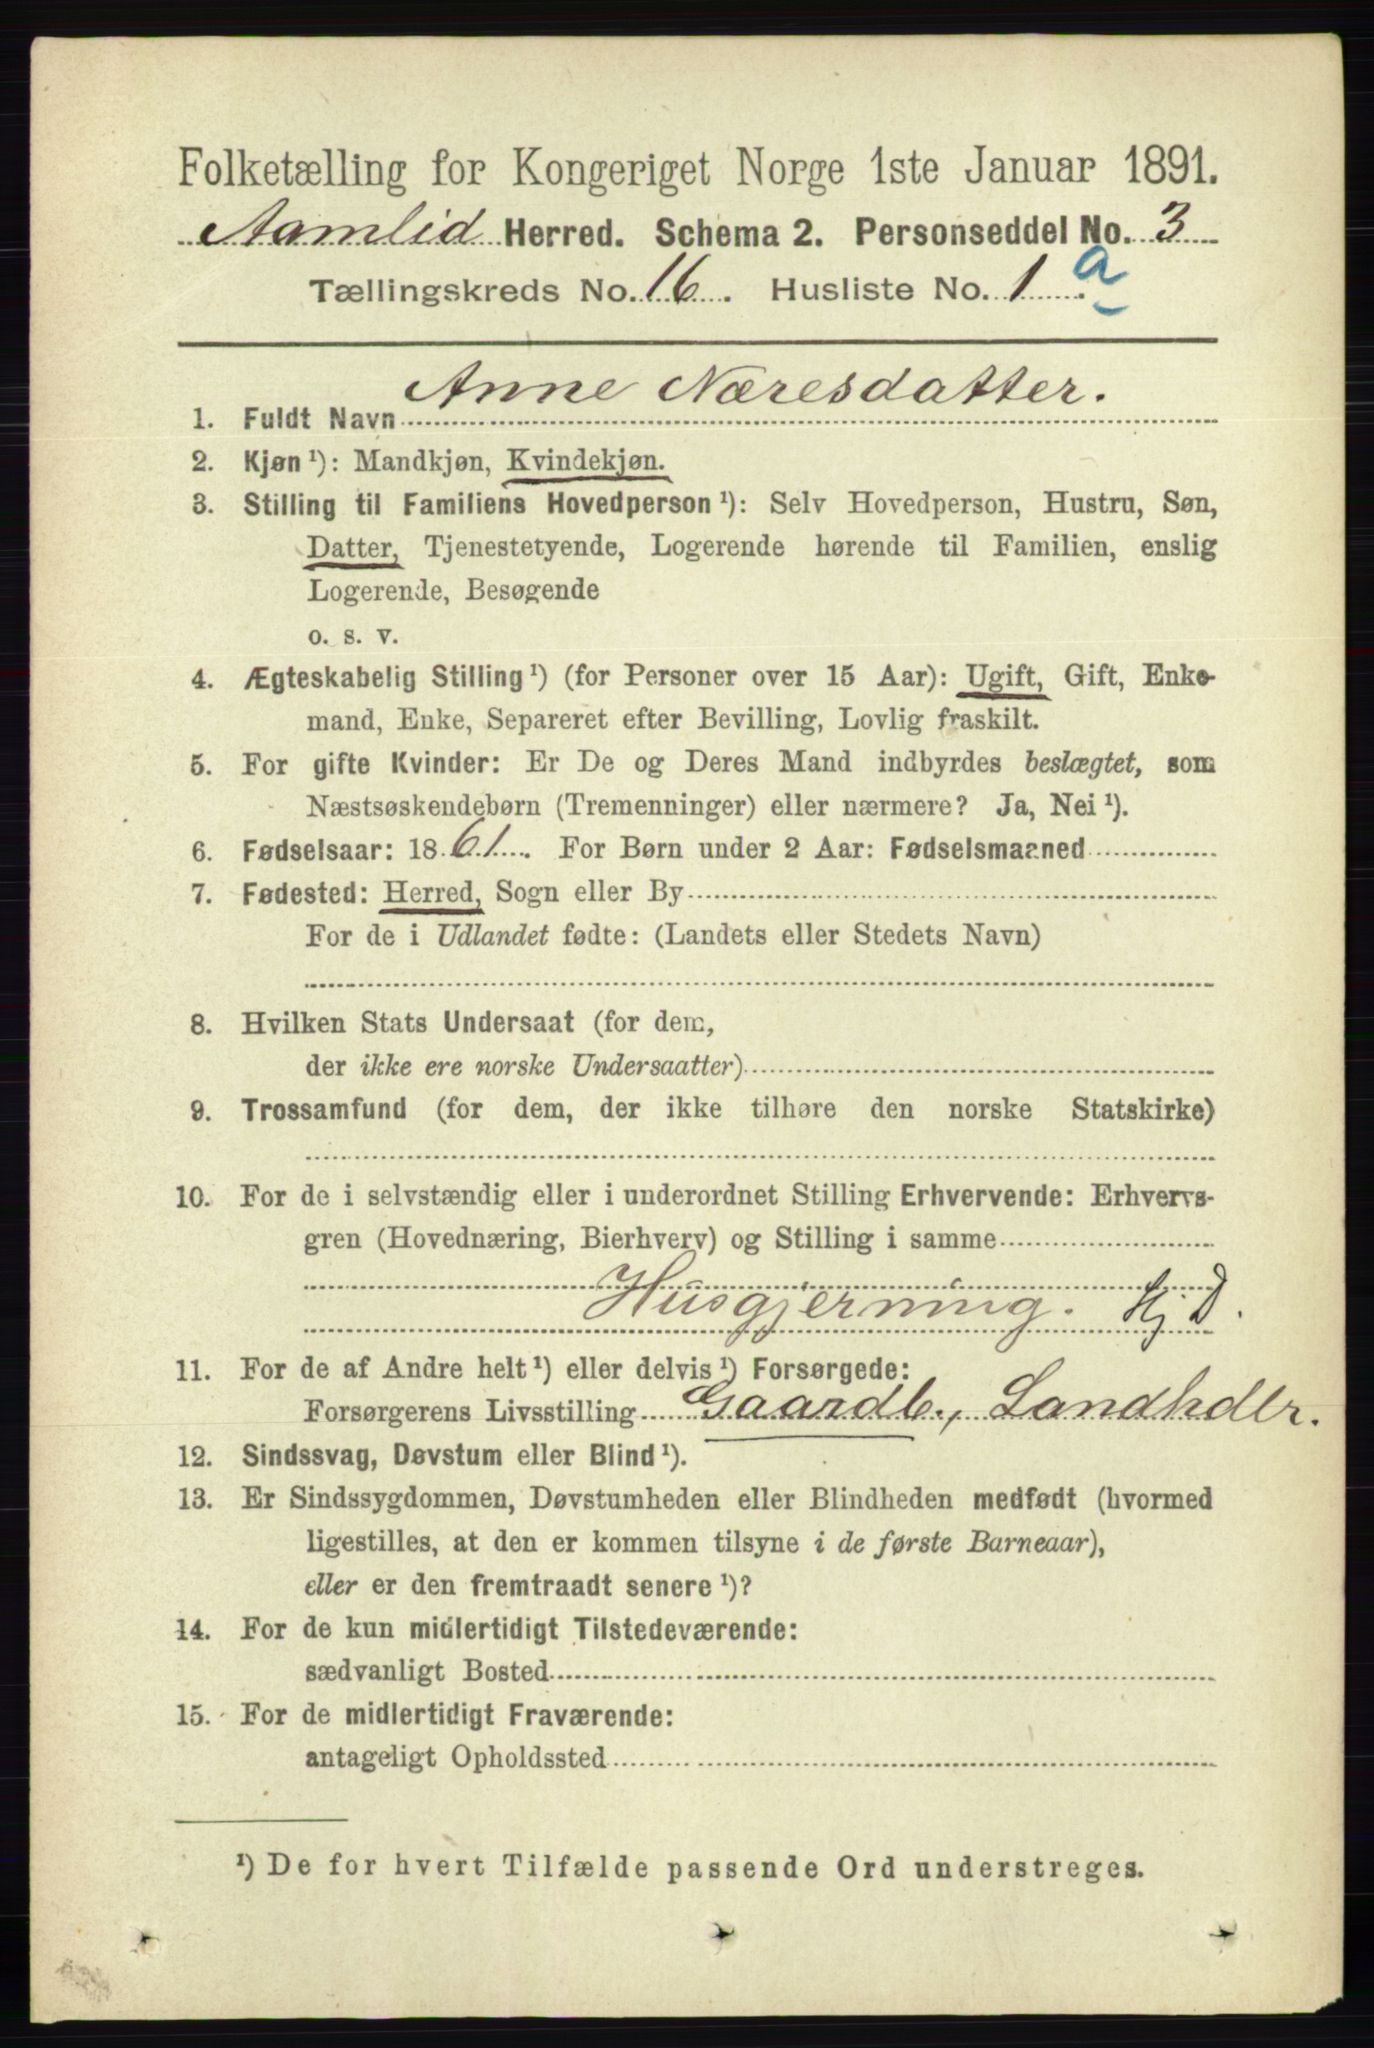 Folketælling for Kongeriget Norge 1ste Januar 1891.
Aamlid Herred. Schema 2. Personseddel No. 3
Tællingskreds No. 16. Husliste No. 1. a
Anne Næresdatter.
1. Fuldt Navn
2. Kjøn ¹): Mandkjøn, Kvindekjøn.
3. Stilling til Familiens Hovedperson ¹): Selv Hovedperson, Hustru, Søn,
Datter, Tjenestetyende, Logerende hørende til Familien, enslig
Logerende, Besøgende
o. s. v.
4. Ægteskabelig Stilling ¹) (for Personer over 15 Aar): Ugift, Gift, Enke-
mand, Enke, Separeret efter Bevilling, Lovlig fraskilt.
5. For gifte Kvinder: Er De og Deres Mand indbyrdes beslægtet, som
Næstsøskendebørn (Tremenninger) eller nærmere? Ja, Nei ¹).
6. Fødselsaar: 1861. For Børn under 2 Aar: Fødselsmaaned
7. Fødested: Herred, Sogn eller By
For de i Udlandet fødte: (Landets eller Stedets Navn)
8. Hvilken Stats Undersaat (for dem,
der ikke ere norske Undersaatter)
9. Trossamfund (for dem, der ikke tilhøre den norske Statskirke)
10. For de i selvstændig eller i underordnet Stilling Erhvervende: Erhvervs-
gren (Hovednæring, Bierhverv) og Stilling i samme
Husgjerning. Hj D.
11. For de af Andre helt ¹) eller delvis ¹) Forsørgede:
Forsørgerens Livsstilling Gaardb., Landhdlr.
12. Sindssvag, Døvstum eller Blind ¹).
13. Er Sindssygdommen, Døvstumheden eller Blindheden medfødt (hvormed
ligestilles, at den er kommen tilsyne i de første Barneaar),
eller er den fremtraadt senere ¹)?
14. For de kun midlertidigt Tilstedeværende:
sædvanligt Bosted
15. For de midlertidigt Fraværende:
antageligt Opholdssted
¹) De for hvert Tilfælde passende Ord understreges.